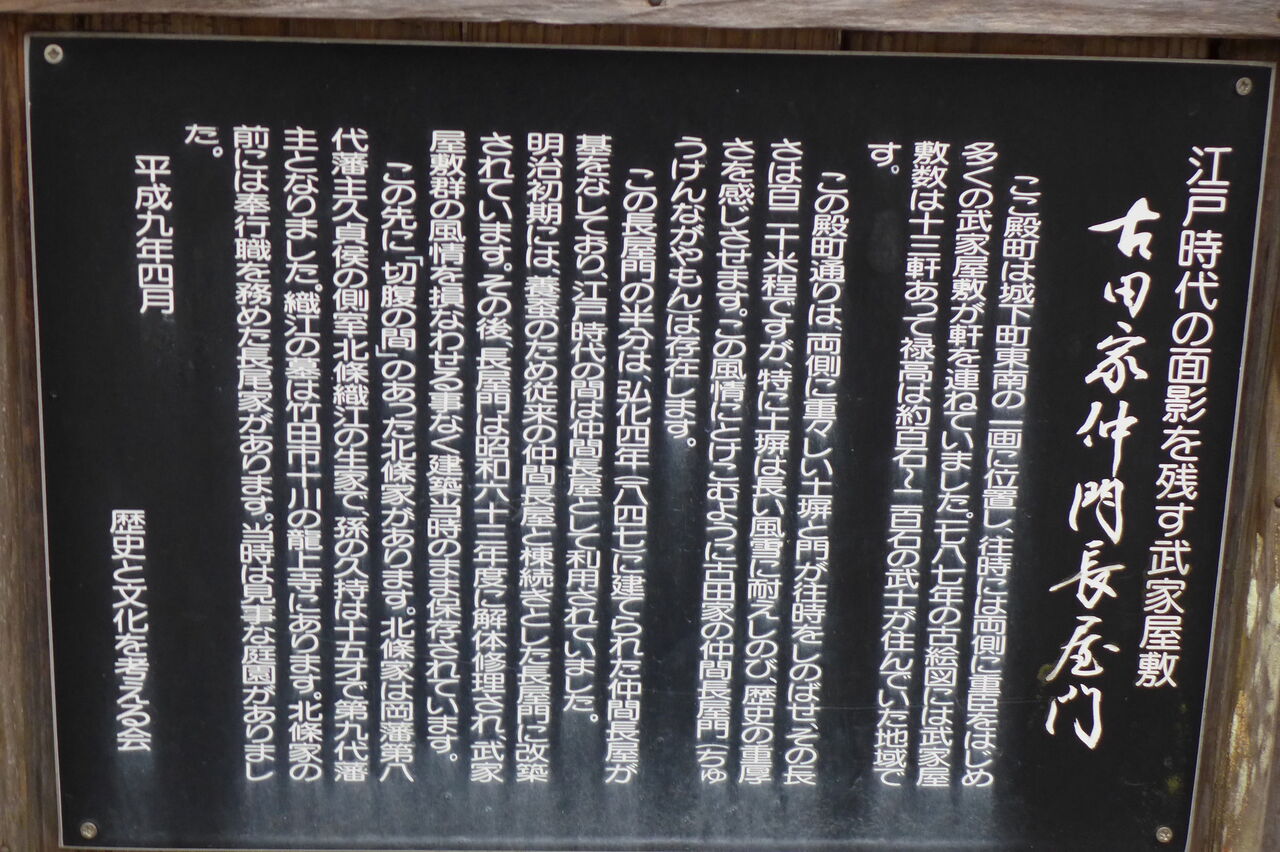 江戸時代の面影を残す武家屋敷
古田家仲間長屋門
ここ殿町は城下町東南の一画に位置し、往時には両側に重臣をはじめ
多くの武家屋敷が軒を連ねていました。一七八七年の古絵図には武家屋
敷数は十三軒あって禄高は約百石～二百石の武士が住んでいた地域で
す。
この殿町通りは、両側に重々しい土塀と門が往時をしのばせ、その長
さは百二十米程ですが、特に土塀は長い風雪に耐えしのび、歴史の重厚
さを感じさせます。この風情にとけこむように古田家の仲間長屋門（ちゅ
うけんながやもん）は存在します。
この長屋門の半分は、弘化四年（一八四七）に建てられた仲間長屋が
基をなしており、江戸時代の間は仲間長屋として利用されていました。
明治初期には、養蚕のため従来の仲間長屋と棟続きとした長屋門に改築
されています。その後、長屋門は昭和六十三年度に解体修理され、武家
屋敷群の風情を損なわせる事なく建築当時のまま保存されています。
この先に「切腹の間」のあった北條家があります。北條家は岡藩第八
代藩主久貞侯の側室北條織江の生家で、孫の久持は十五才で第九代藩
主となりました。織江の墓は竹田市十川の龍上寺にあります。北條家の
前には奉行職を務めた長尾家があります。当時は見事な庭園がありまし
た。
平成九年四月
歴史と文化を考える会